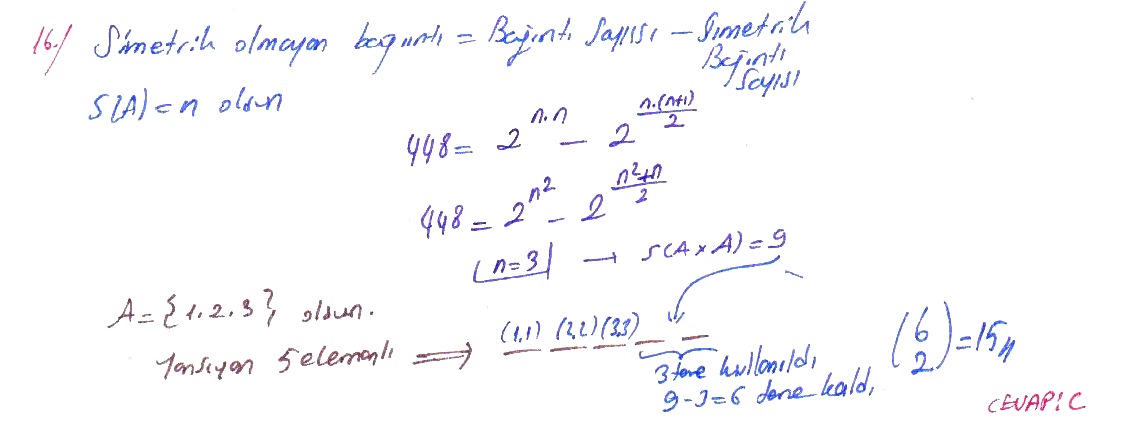 16-) Simetrik olmayan bağıntı = Bağıntı Sayısı - Simetrik Bağıntı Sayısı
S(A) = n olsun
448 = 2^{n.n} - 2^{\frac{n.(n+1)}{2}}
448 = 2^{n^2} - 2^{\frac{n^2+n}{2}}
n=3 → s(A x A) = 9
A = {1,2,3} olsun.
Yansıyan 5 elemanlı ⟹ (1,1) (2,2) (3,3) _ _
3 tane kullanıldı
9-3=6 tane kaldı
\binom{6}{2} = 15//
CEVAP: C